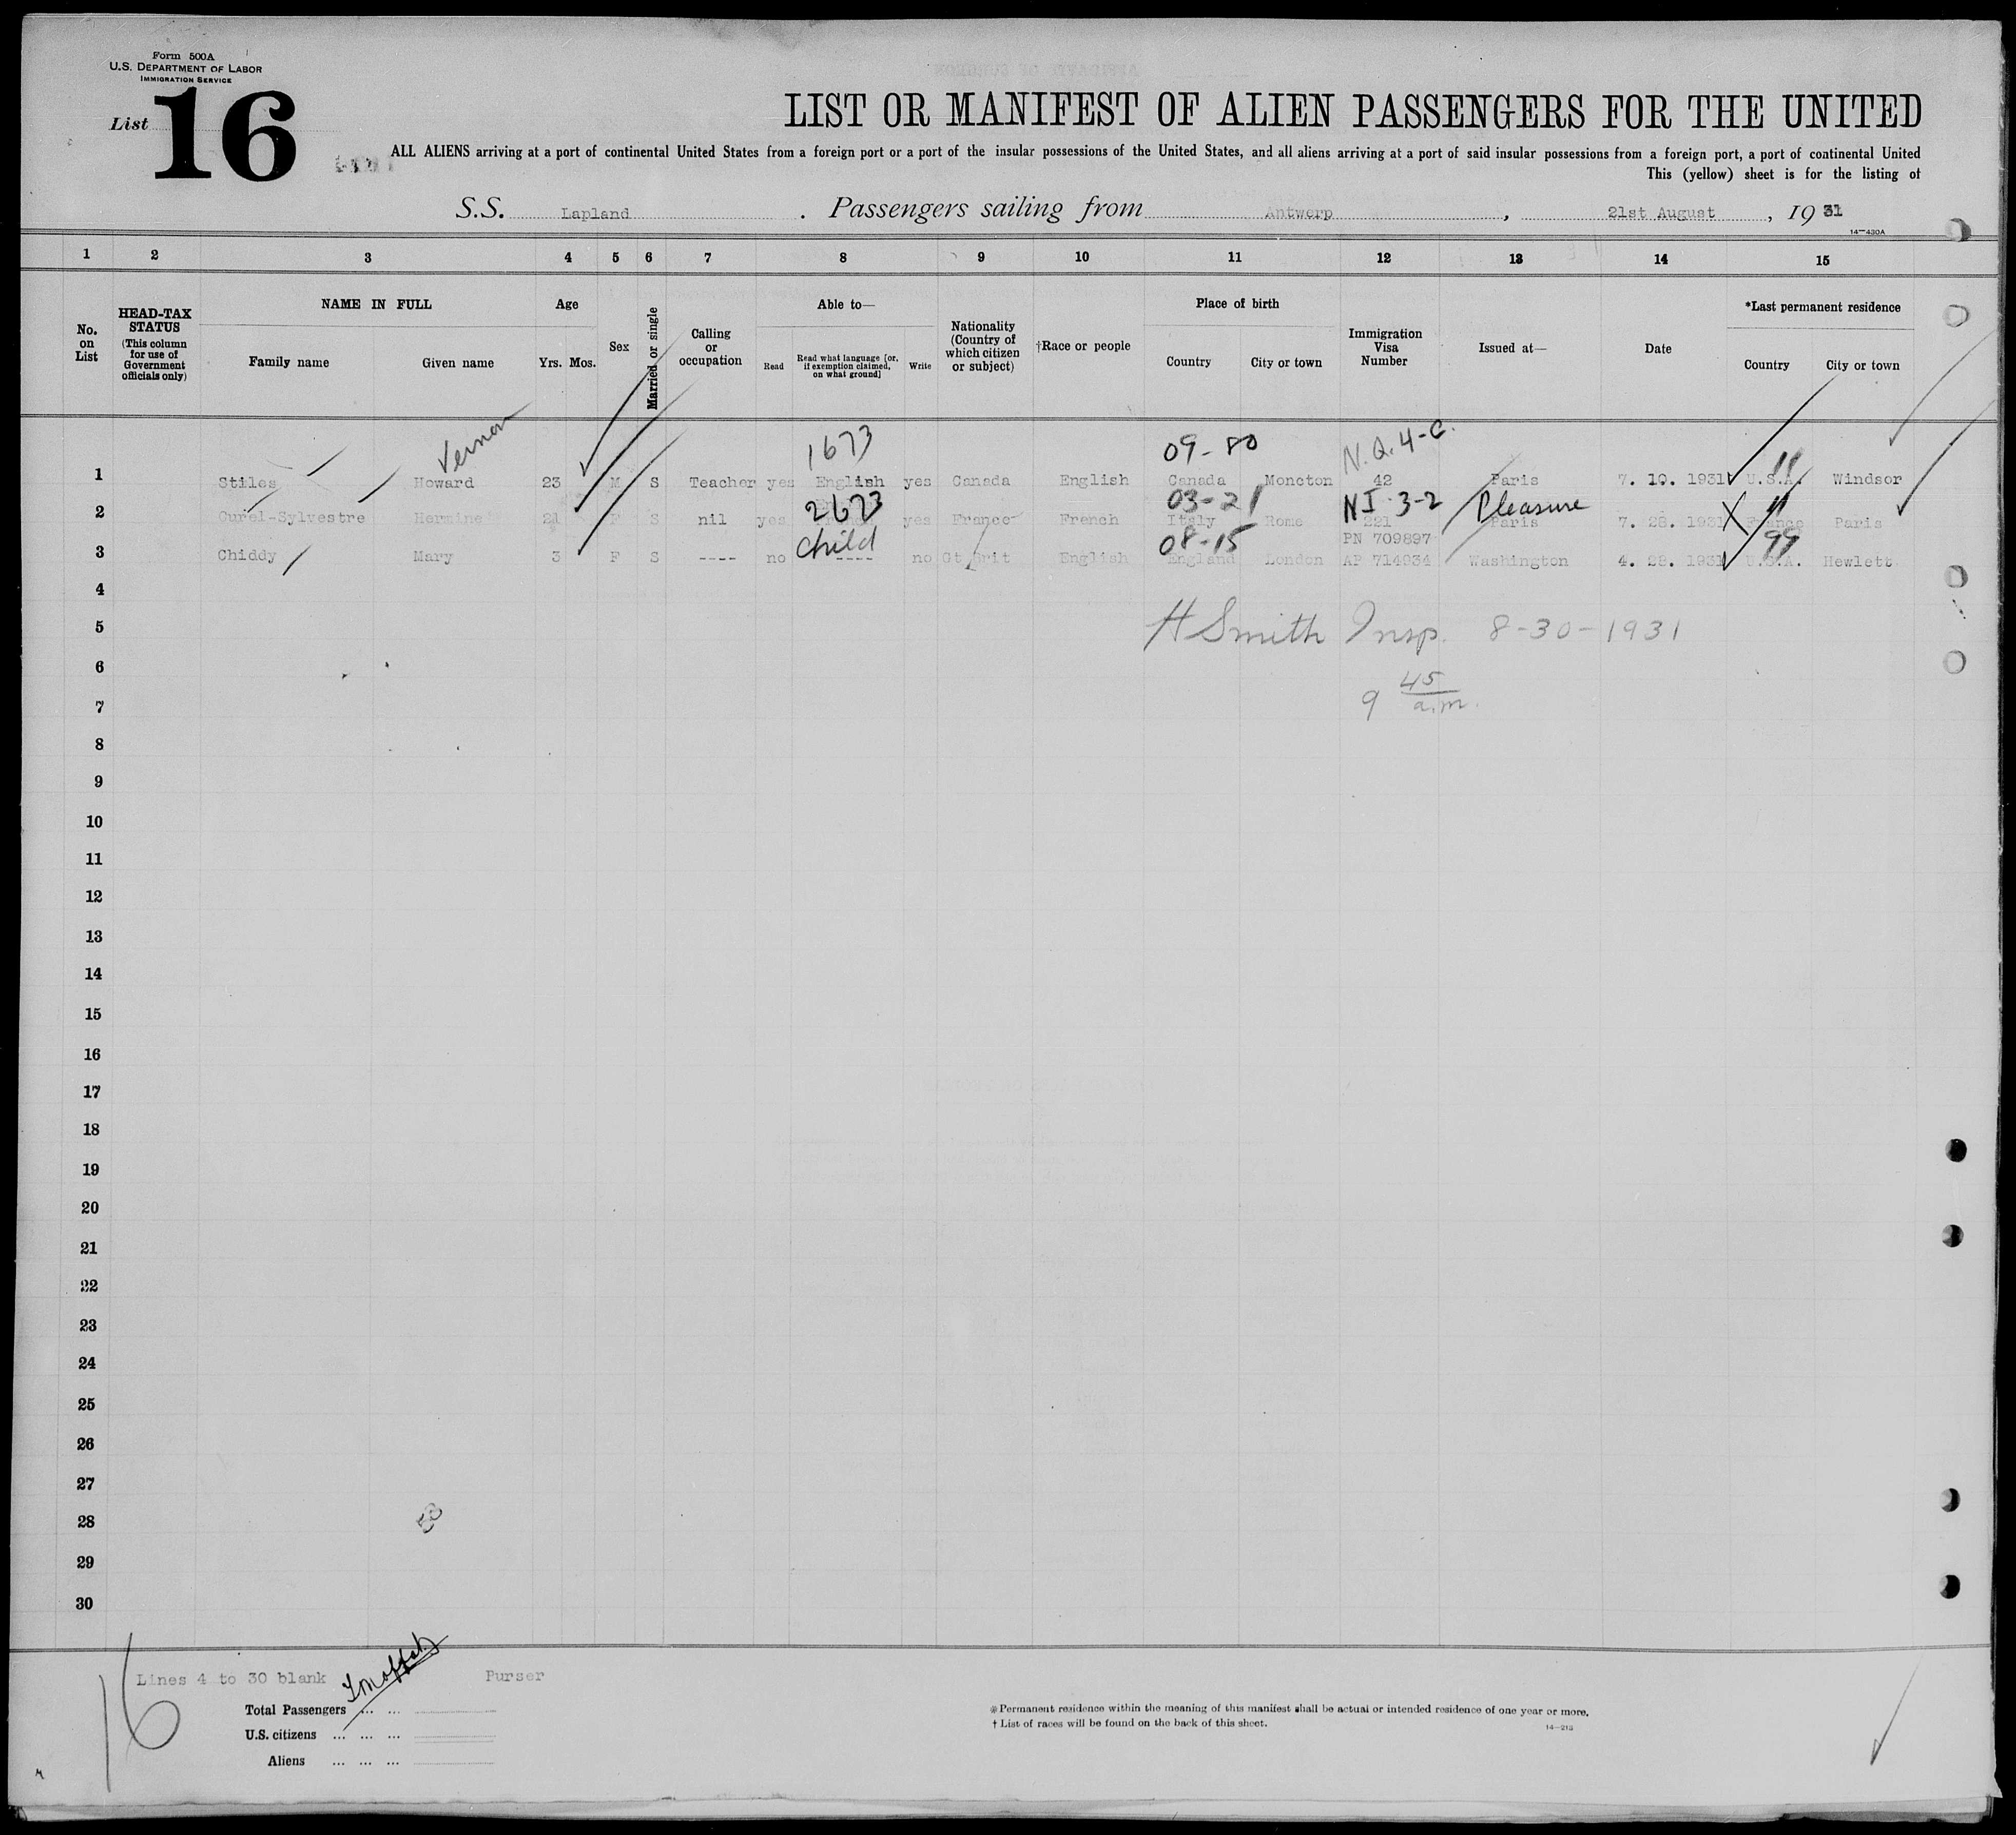 Form 500A
U.S. DEPARTMENT OF LABOR
IMMIGRATION SERVICE
List 16
LIST OR MANIFEST OF ALIEN PASSENGERS FOR THE UNITED
ALL ALIENS arriving at a port of continental United States from a foreign port or a port of the insular possessions of the United States, and all aliens arriving at a port of said insular possessions from a foreign port, a port of continental United
This (yellow) sheet is for the listing of
S.S. Lapland . Passengers sailing from Antwerp , 21st August , 19 31
14—430A
1 2 3 4 5 6 7 8 9 10 11 12 13 14 15
No. on List
HEAD-TAX STATUS (This column for use of Government officials only)
NAME IN FULL
Family name Given name
Age
Yrs. Mos.
Sex
Married or single
Calling or occupation
Able to—
Read Read what language [or, if exemption claimed, on what ground] Write
Nationality (Country of which citizen or subject)
†Race or people
Place of birth
Country City or town
Immigration Visa Number
Issued at—
Date
*Last permanent residence
Country City or town
Vernon 1673 09-80 N.Q.4-C. 11
1 Stiles Howard 23 M S Teacher yes English yes Canada English Canada Moncton 42 Paris 7. 10. 1931 U.S.A. Windsor
2673 03-21 NI 3-2 Pleasure 11
2 Curel-Sylvestre Hermine 21 F S nil yes yes France French Italy Rome 221 Paris 7. 28. 1931 France Paris
child 08-15 PN 709897 99
3 Chiddy Mary 3 F S ---- no ---- no Gt Brit English England London AP 714934 Washington 4. 28. 1931 U.S.A. Hewlett
4
5 H Smith Insp. 8-30-1931
6
7 9 45 a.m.
8
9
10
11
12
13
14
15
16
17
18
19
20
21
22
23
24
25
26
27
28
29
30
16
Lines 4 to 30 blank Purser
Total Passengers ... ...
U.S. citizens ... ... ...
Aliens ... ... ...
*Permanent residence within the meaning of this manifest shall be actual or intended residence of one year or more.
† List of races will be found on the back of this sheet.
14—213